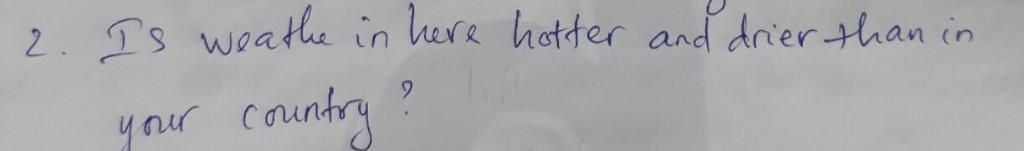 2. Is weathe in here hotter and drier than in
your country?